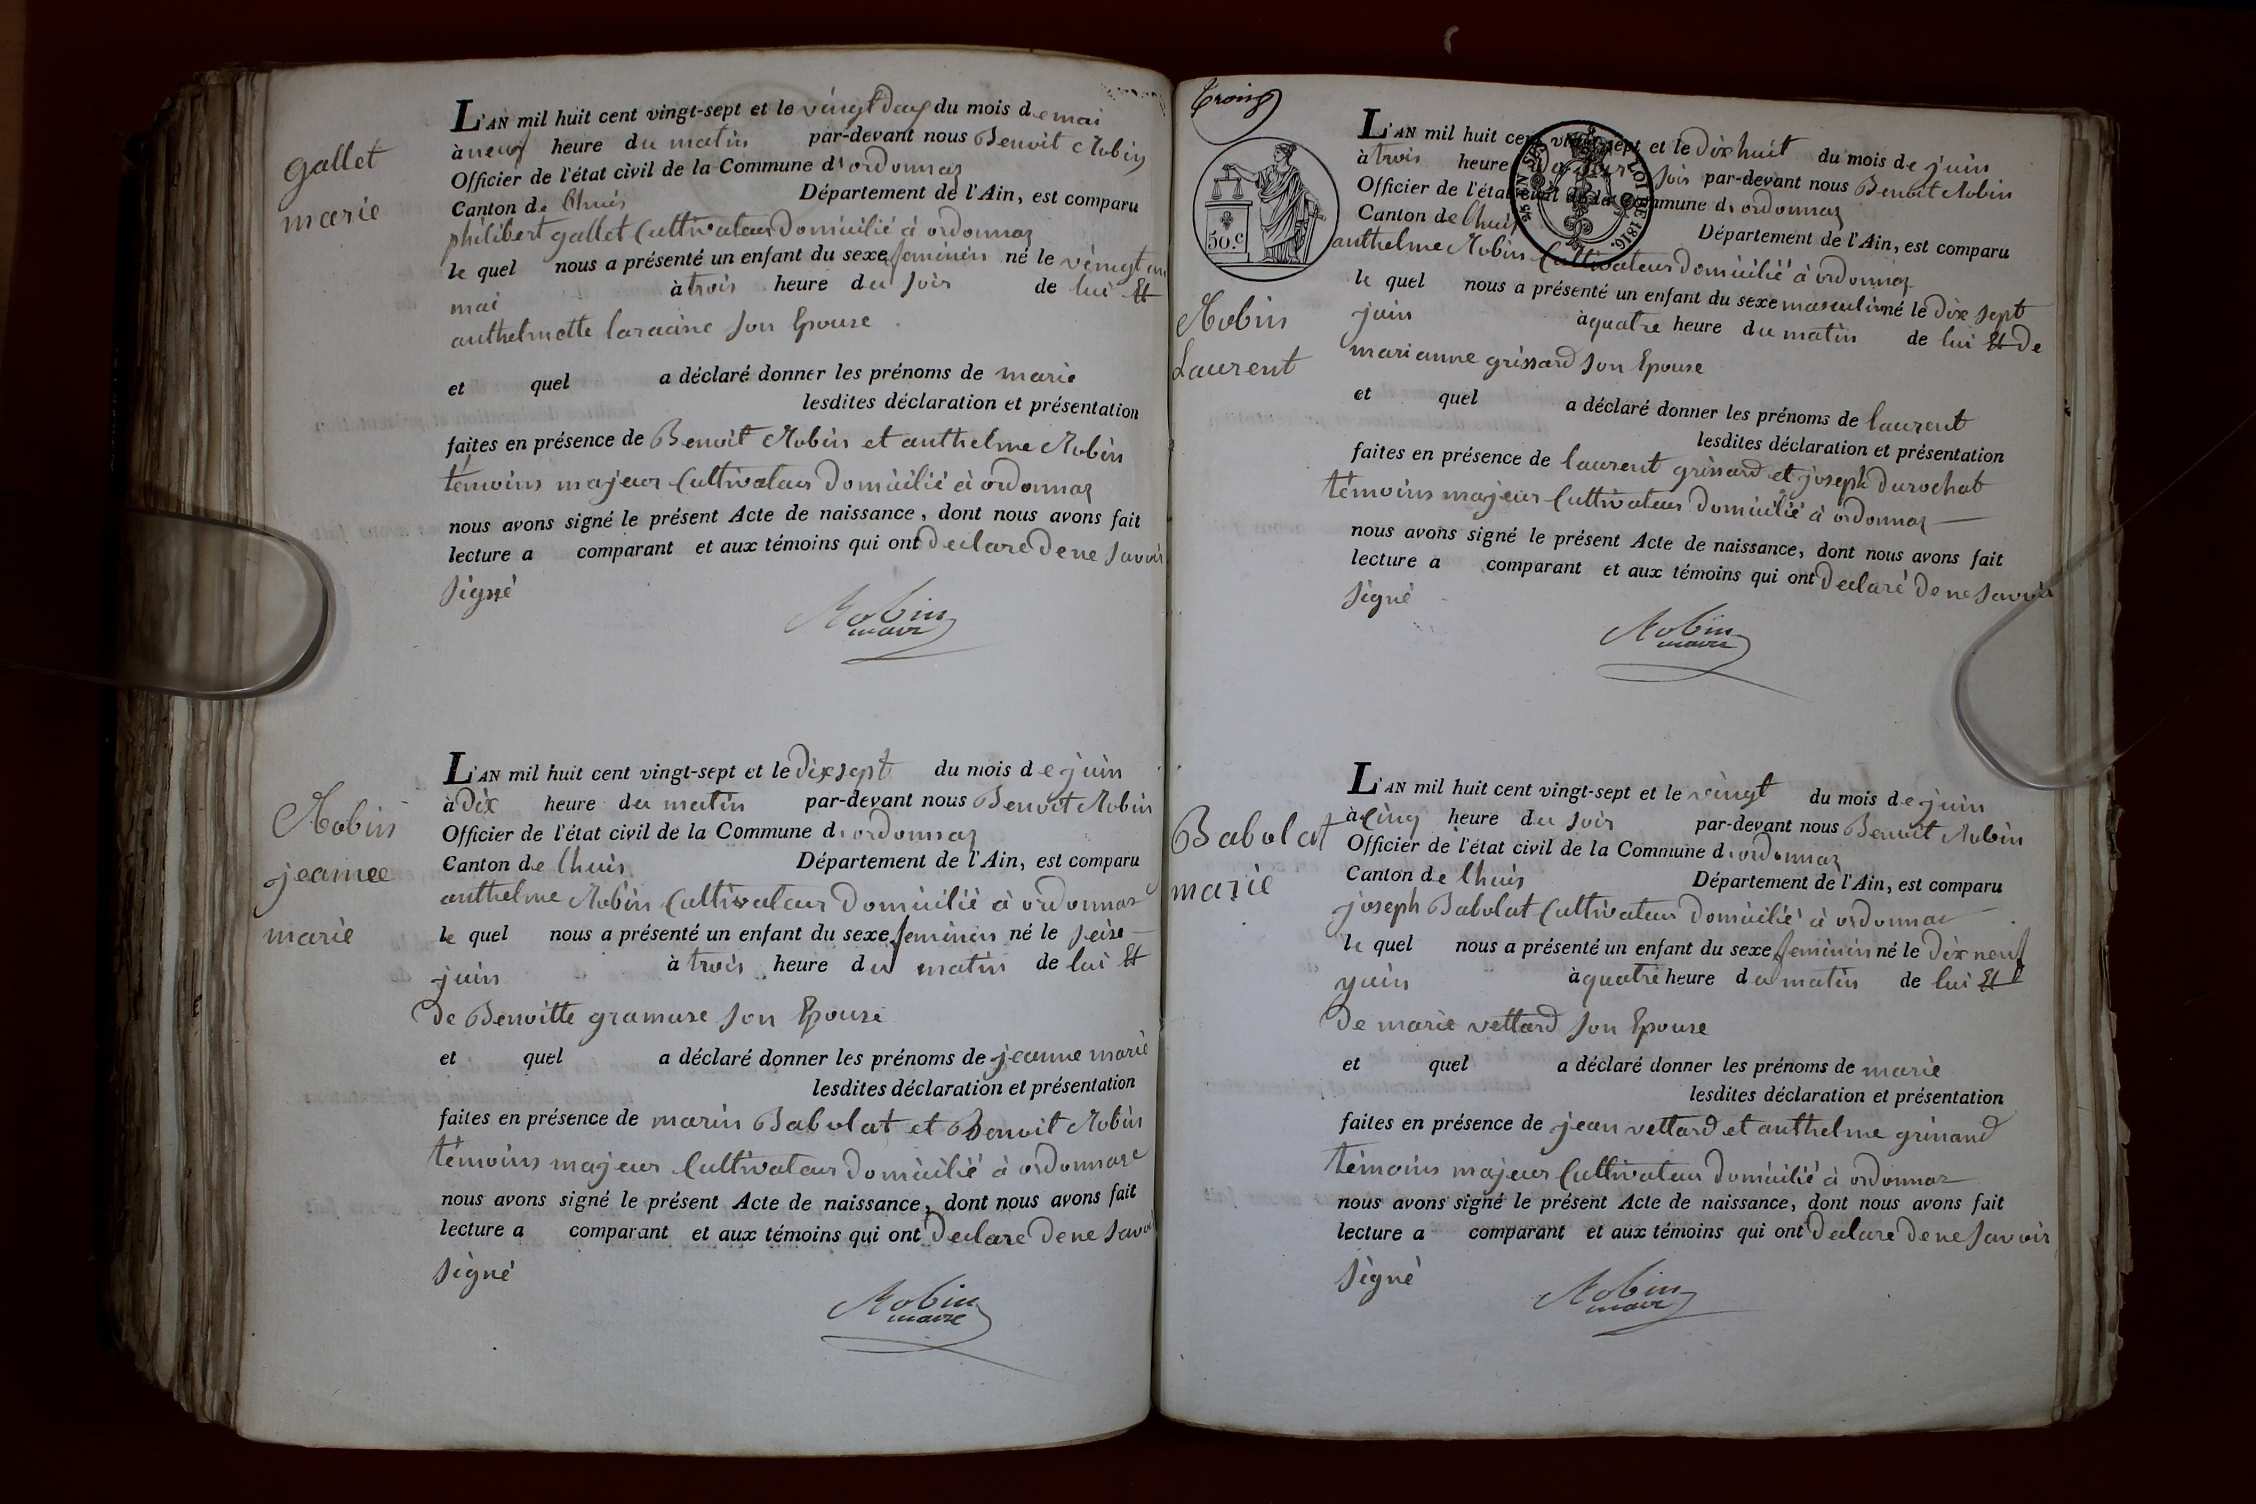 gallet
marie
L'AN mil huit cent vingt-sept et le vingt deux du mois de mai
à neuf heure du matin par-devant nous Benoit Robin
Officier de l'état civil de la Commune d'ordonnaz
Canton de lhuis Département de l'Ain, est comparu
philibert gallet Cultivateur Domicilié à ordonnaz
le quel nous a présenté un enfant du sexe feminin né le vingt un
mai à trois heure du soir de lui Et
anthelmette laracine son Epouse
et quel a déclaré donner les prénoms de marie
lesdites déclaration et présentation
faites en présence de Benoit Robin et anthelme Robin
témoins majeur Cultivateur Domicilié à ordonnaz
nous avons signé le présent Acte de naissance, dont nous avons fait
lecture a comparant et aux témoins qui ont Declare De ne savoir
signé
Robin
maire
Robin
jeanne
marie
L'AN mil huit cent vingt-sept et le Dix sept du mois de juin
à Dix heure du matin par-devant nous Benoit Robin
Officier de l'état civil de la Commune d'ordonnaz
Canton de lhuis Département de l'Ain, est comparu
anthelme Robin Cultivateur Domicilié à ordonnaz
le quel nous a présenté un enfant du sexe feminin né le seise
juin à trois heure du matin de lui Et
De Benoitte gramuse son Epouse
et quel a déclaré donner les prénoms de jeanne marie
lesdites déclaration et présentation
faites en présence de marin Babolat et Benoit Robin
témoins majeur Cultivateur Domicilié à ordonnaz
nous avons signé le présent Acte de naissance, dont nous avons fait
lecture a comparant et aux témoins qui ont Declare De ne savoir
signé
Robin
maire
50.c
EN SUS
LOI DE 1816.
Robin
Laurent
L'AN mil huit cent vingt-sept et le Dix huit du mois de juin
à trois heure du soir par-devant nous Benoit Robin
Officier de l'état civil de la Commune d'ordonnaz
Canton de lhuis Département de l'Ain, est comparu
anthelme Robin Cultivateur Domicilié à ordonnaz
le quel nous a présenté un enfant du sexe masculin né le Dix sept
juin à quatre heure du matin de lui Et De
marianne grissard son Epouse
et quel a déclaré donner les prénoms de laurent
lesdites déclaration et présentation
faites en présence de laurent grissard et joseph Durochat
témoins majeur Cultivateur Domicilié à ordonnaz
nous avons signé le présent Acte de naissance, dont nous avons fait
lecture a comparant et aux témoins qui ont Declaré De ne savoir
signé
Robin
maire
Babolat
marie
L'AN mil huit cent vingt-sept et le vingt du mois de juin
à Cinq heure du soir par-devant nous Benoit Robin
Officier de l'état civil de la Commune d'ordonnaz
Canton de lhuis Département de l'Ain, est comparu
joseph Babolat Cultivateur Domicilié à ordonnaz
le quel nous a présenté un enfant du sexe feminin né le Dix neuf
juin à quatre heure du matin de lui Et
De marie vettard son Epouse
et quel a déclaré donner les prénoms de marie
lesdites déclaration et présentation
faites en présence de jean vettard et anthelme grinand
témoins majeur Cultivateur Domicilié à ordonnaz
nous avons signé le présent Acte de naissance, dont nous avons fait
lecture a comparant et aux témoins qui ont Declaré De ne savoir
signé
Robin
maire